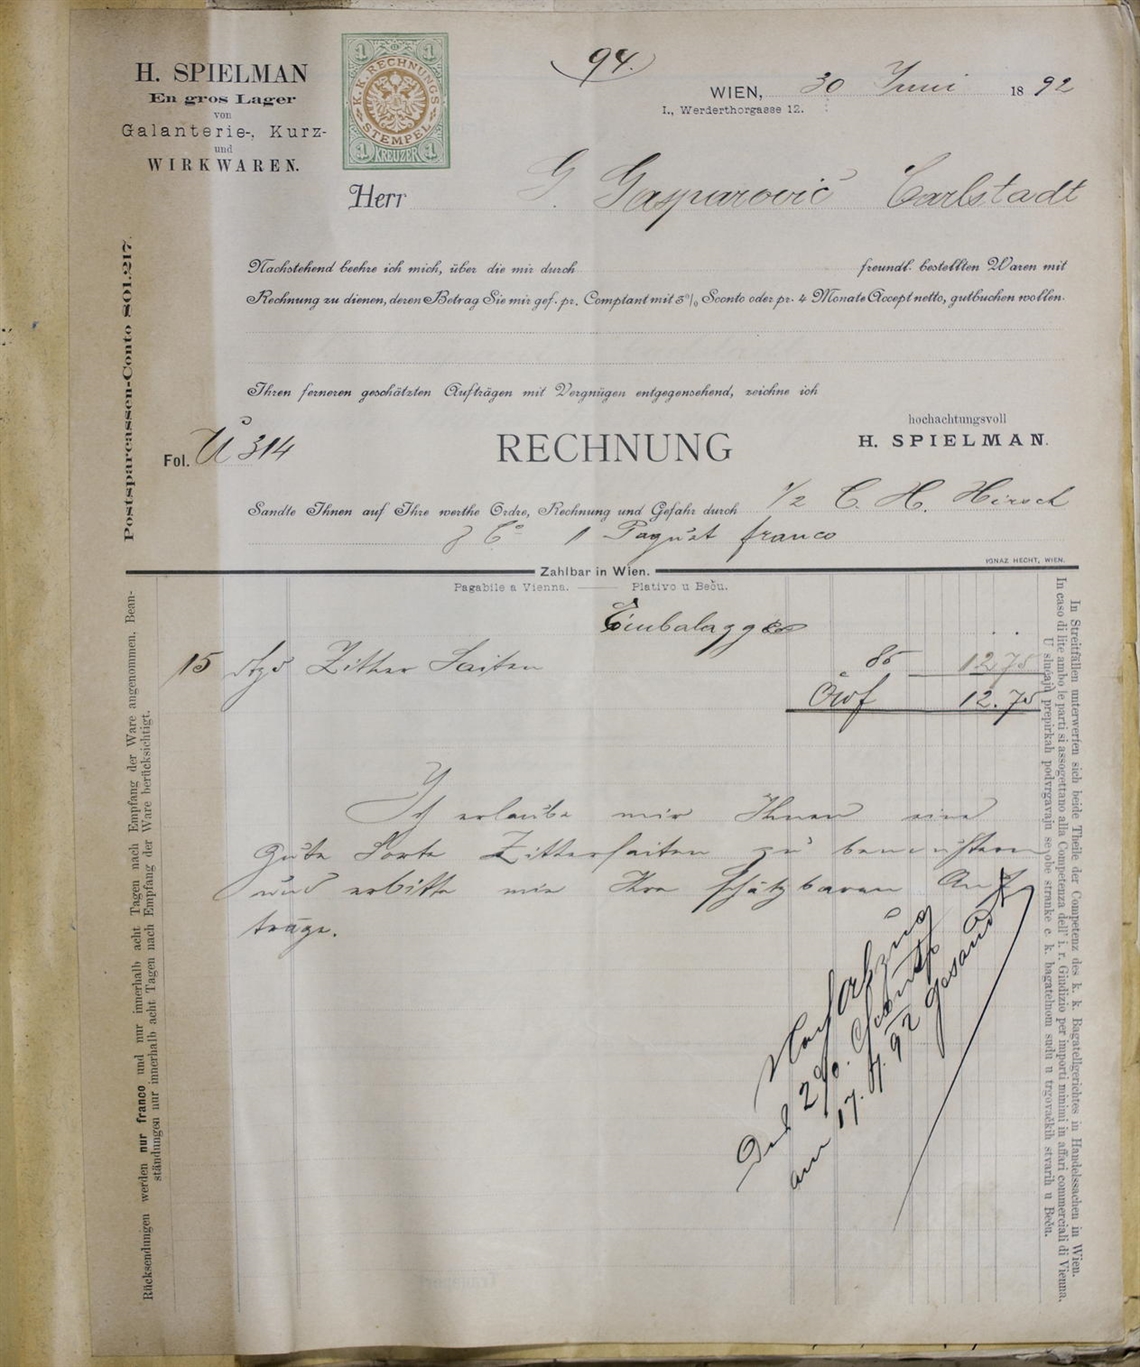 94.
H. SPIELMAN
En gros Lager
von
Galanterie-, Kurz-
und
WIRKWAREN.
1 1
K. K. RECHNUNGS
STEMPEL
1 KREUZER 1
WIEN, 30 Juni 1892
I., Werderthorgasse 12.
Herr G. Gasparović Carlstadt
Nachstehend beehre ich mich, über die mir durch freundl. bestellten Waren mit
Rechnung zu dienen, deren Betrag Sie mir gef. pr. Comptant mit 3% Sconto oder pr. 4 Monate Accept netto, gutbuchen wollen.
Ihren ferneren geschätzten Aufträgen mit Vergnügen entgegensehend, zeichne ich
hochachtungsvoll
H. SPIELMAN.
Fol. U 314
RECHNUNG
Sandte Ihnen auf Ihre werthe Ordre, Rechnung und Gefahr durch C. H. Hirsch
& Co 1 Paquet franco
IGNAZ HECHT, WIEN.
Zahlbar in Wien.
Pagabile a Vienna. Plativo u Beču.
Embalagge
15 Zither Saiten 85 12.75
12.75
Ich erlaube mir Ihnen eine
gute Sorte Zithersaiten zu bemustern
und erbitte mir Ihre schätzbaren Auf
träge.
Nach Abzug
2%. Sconto
am 17. 92 gesandt
Postsparcassen-Conto 801.217.
Rücksendungen werden nur franco und nur innerhalb acht Tagen nach Empfang der Ware angenommen. Bean-
ständungen nur innerhalb acht Tagen nach Empfang der Ware berücksichtigt.
In Streitfällen unterwerfen sich beide Theile der Competenz des k. k. Bagatellgerichtes in Handelssachen in Wien.
In caso di lite ambo le parti si assogettano alla Competenza dell' i. r. Giudizio per importi minimi in affari commerciali di Vienna.
U slučaju prepirkah podvrgavaju se obe stranke c. k. bagatelnom sudu u trgovačkih stvarih u Beču.